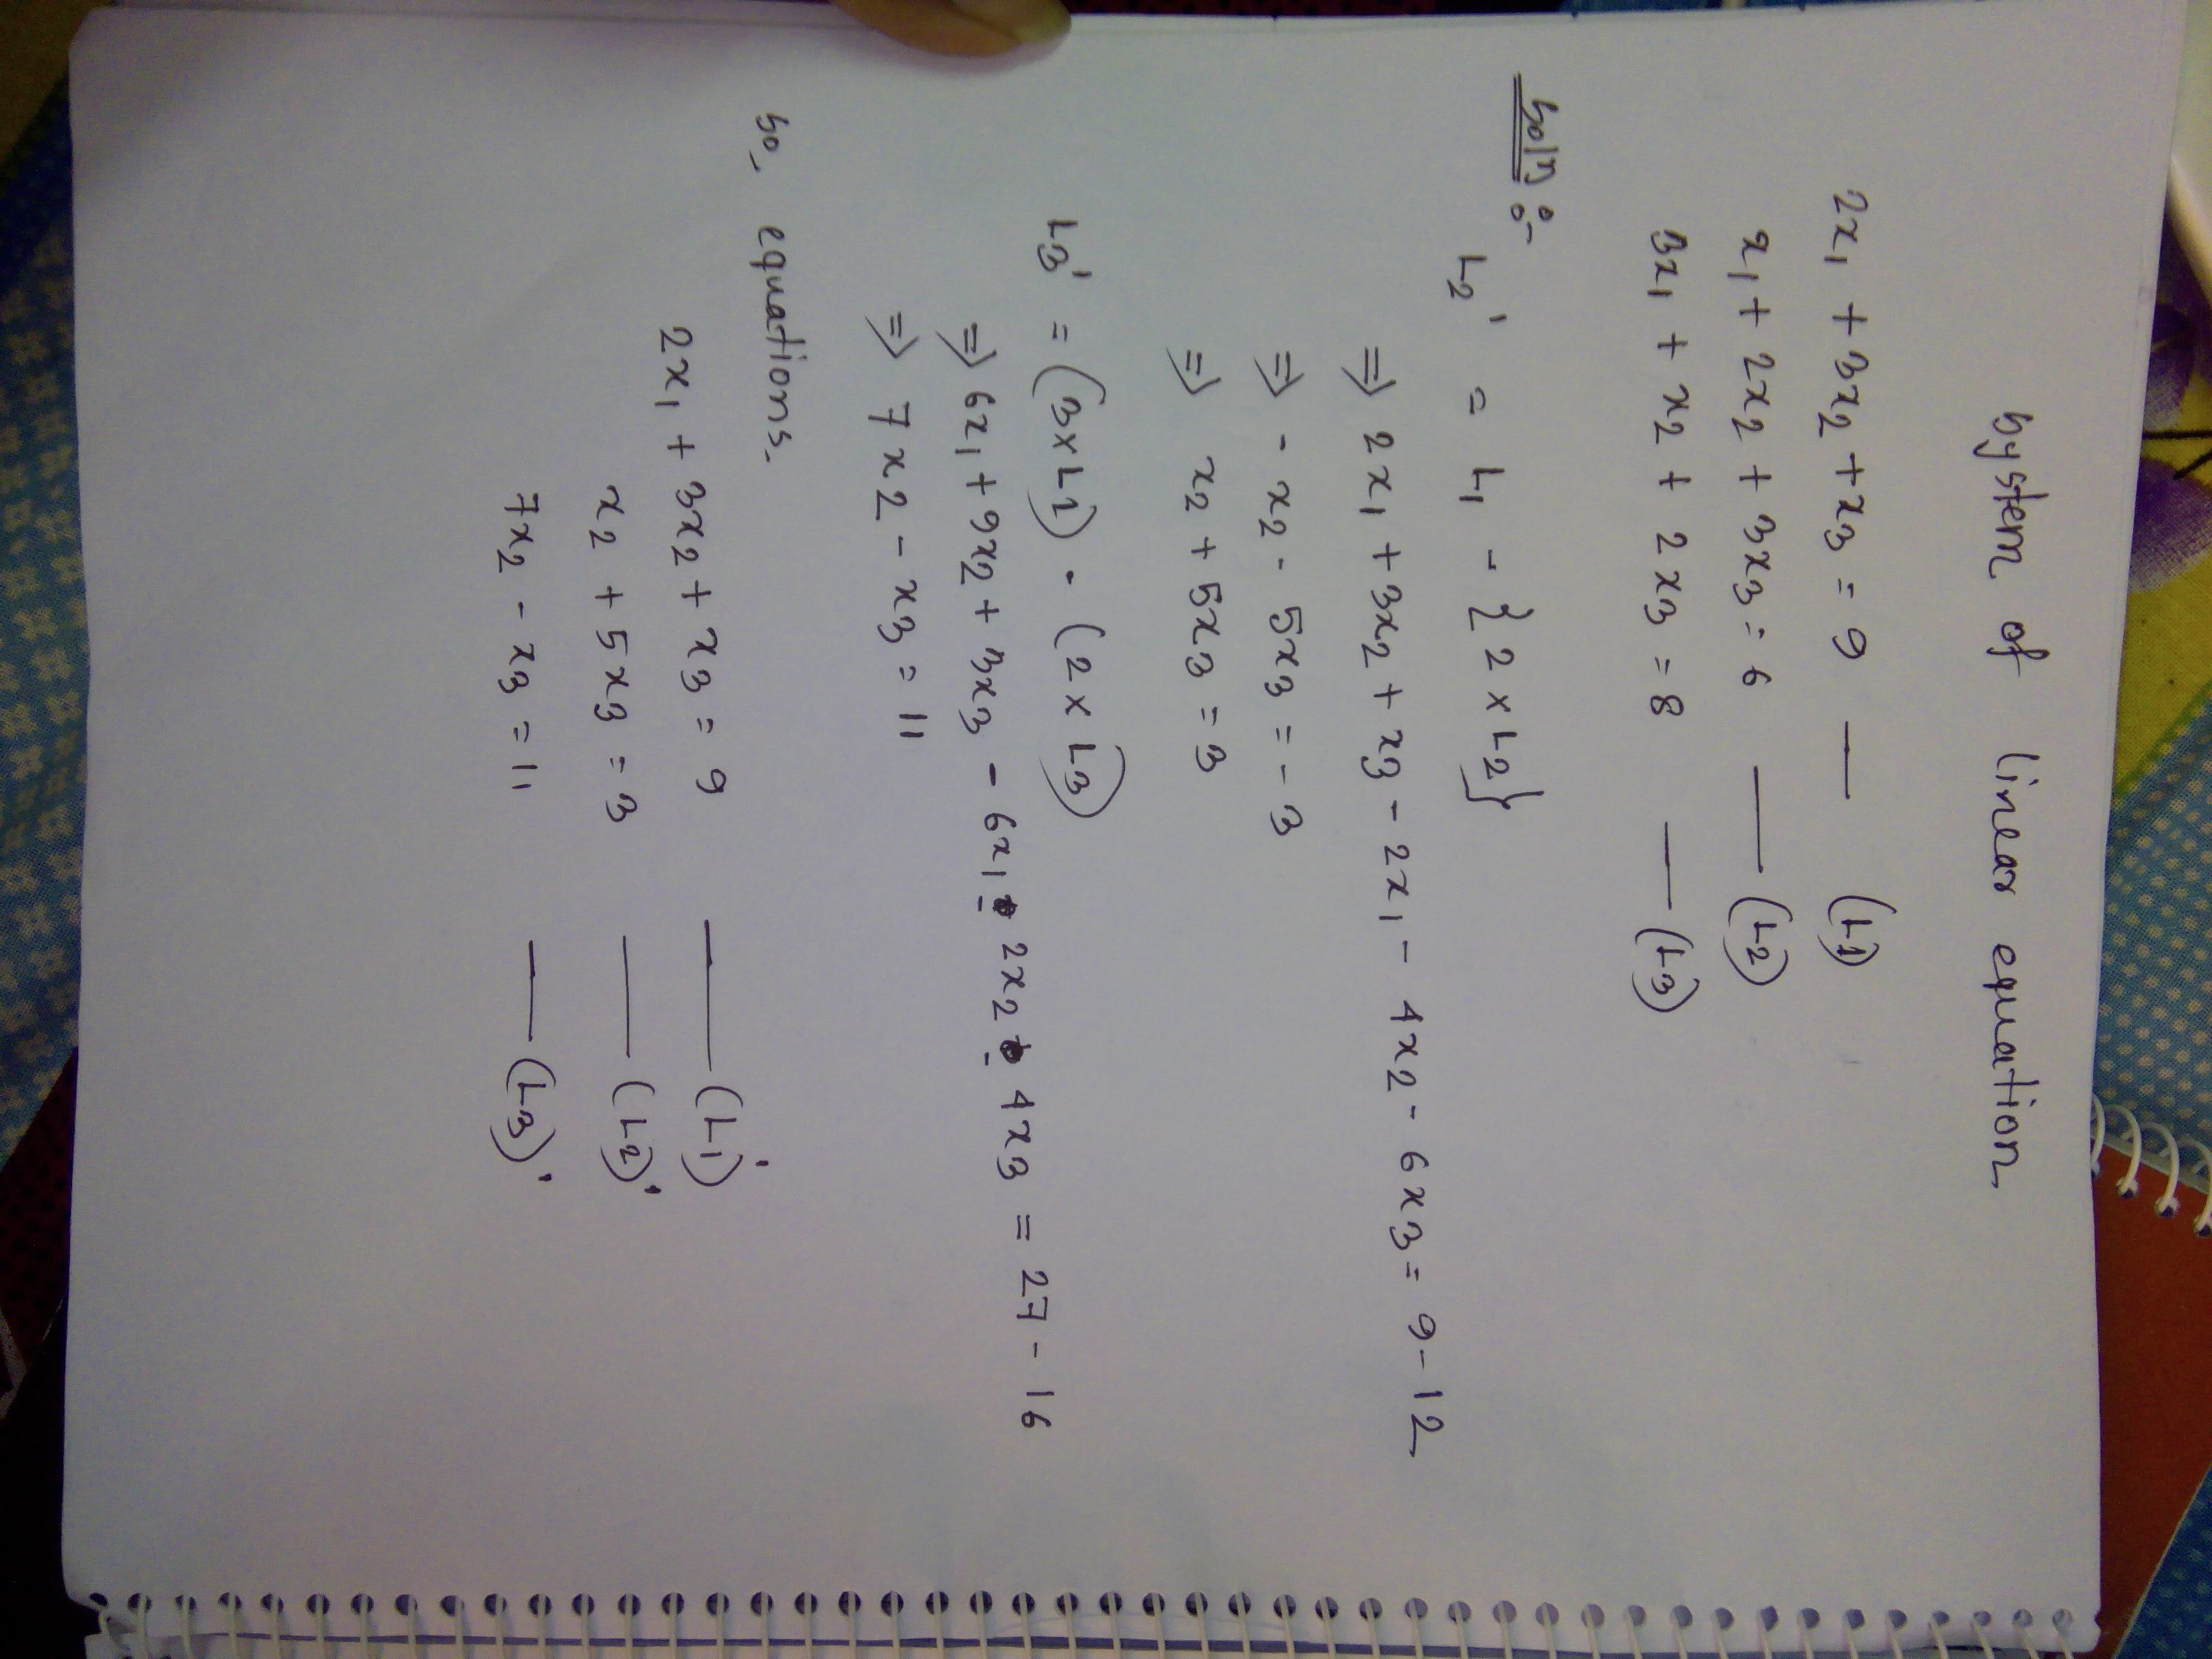 System of linear equation
2x₁ + 3x₂ + x₃ = 9 — (L1)
x₁ + 2x₂ + 3x₃ = 6 — (L2)
3x₁ + x₂ + 2x₃ = 8 — (L3)
Soln :-
L₂' = L₁ - {2 × L₂}
⇒ 2x₁ + 3x₂ + x₃ - 2x₁ - 4x₂ - 6x₃ = 9 - 12
⇒ - x₂ - 5x₃ = - 3
⇒ x₂ + 5x₃ = 3
L₃' = (3×L1) - (2 × L3)
⇒ 6x₁ + 9x₂ + 3x₃ - 6x₁ - 2x₂ - 4x₃ = 27 - 16
⇒ 7x₂ - x₃ = 11
So, equations.
2x₁ + 3x₂ + x₃ = 9 — (L₁')
x₂ + 5x₃ = 3 — (L2)'
7x₂ - x₃ = 11 — (L3)'